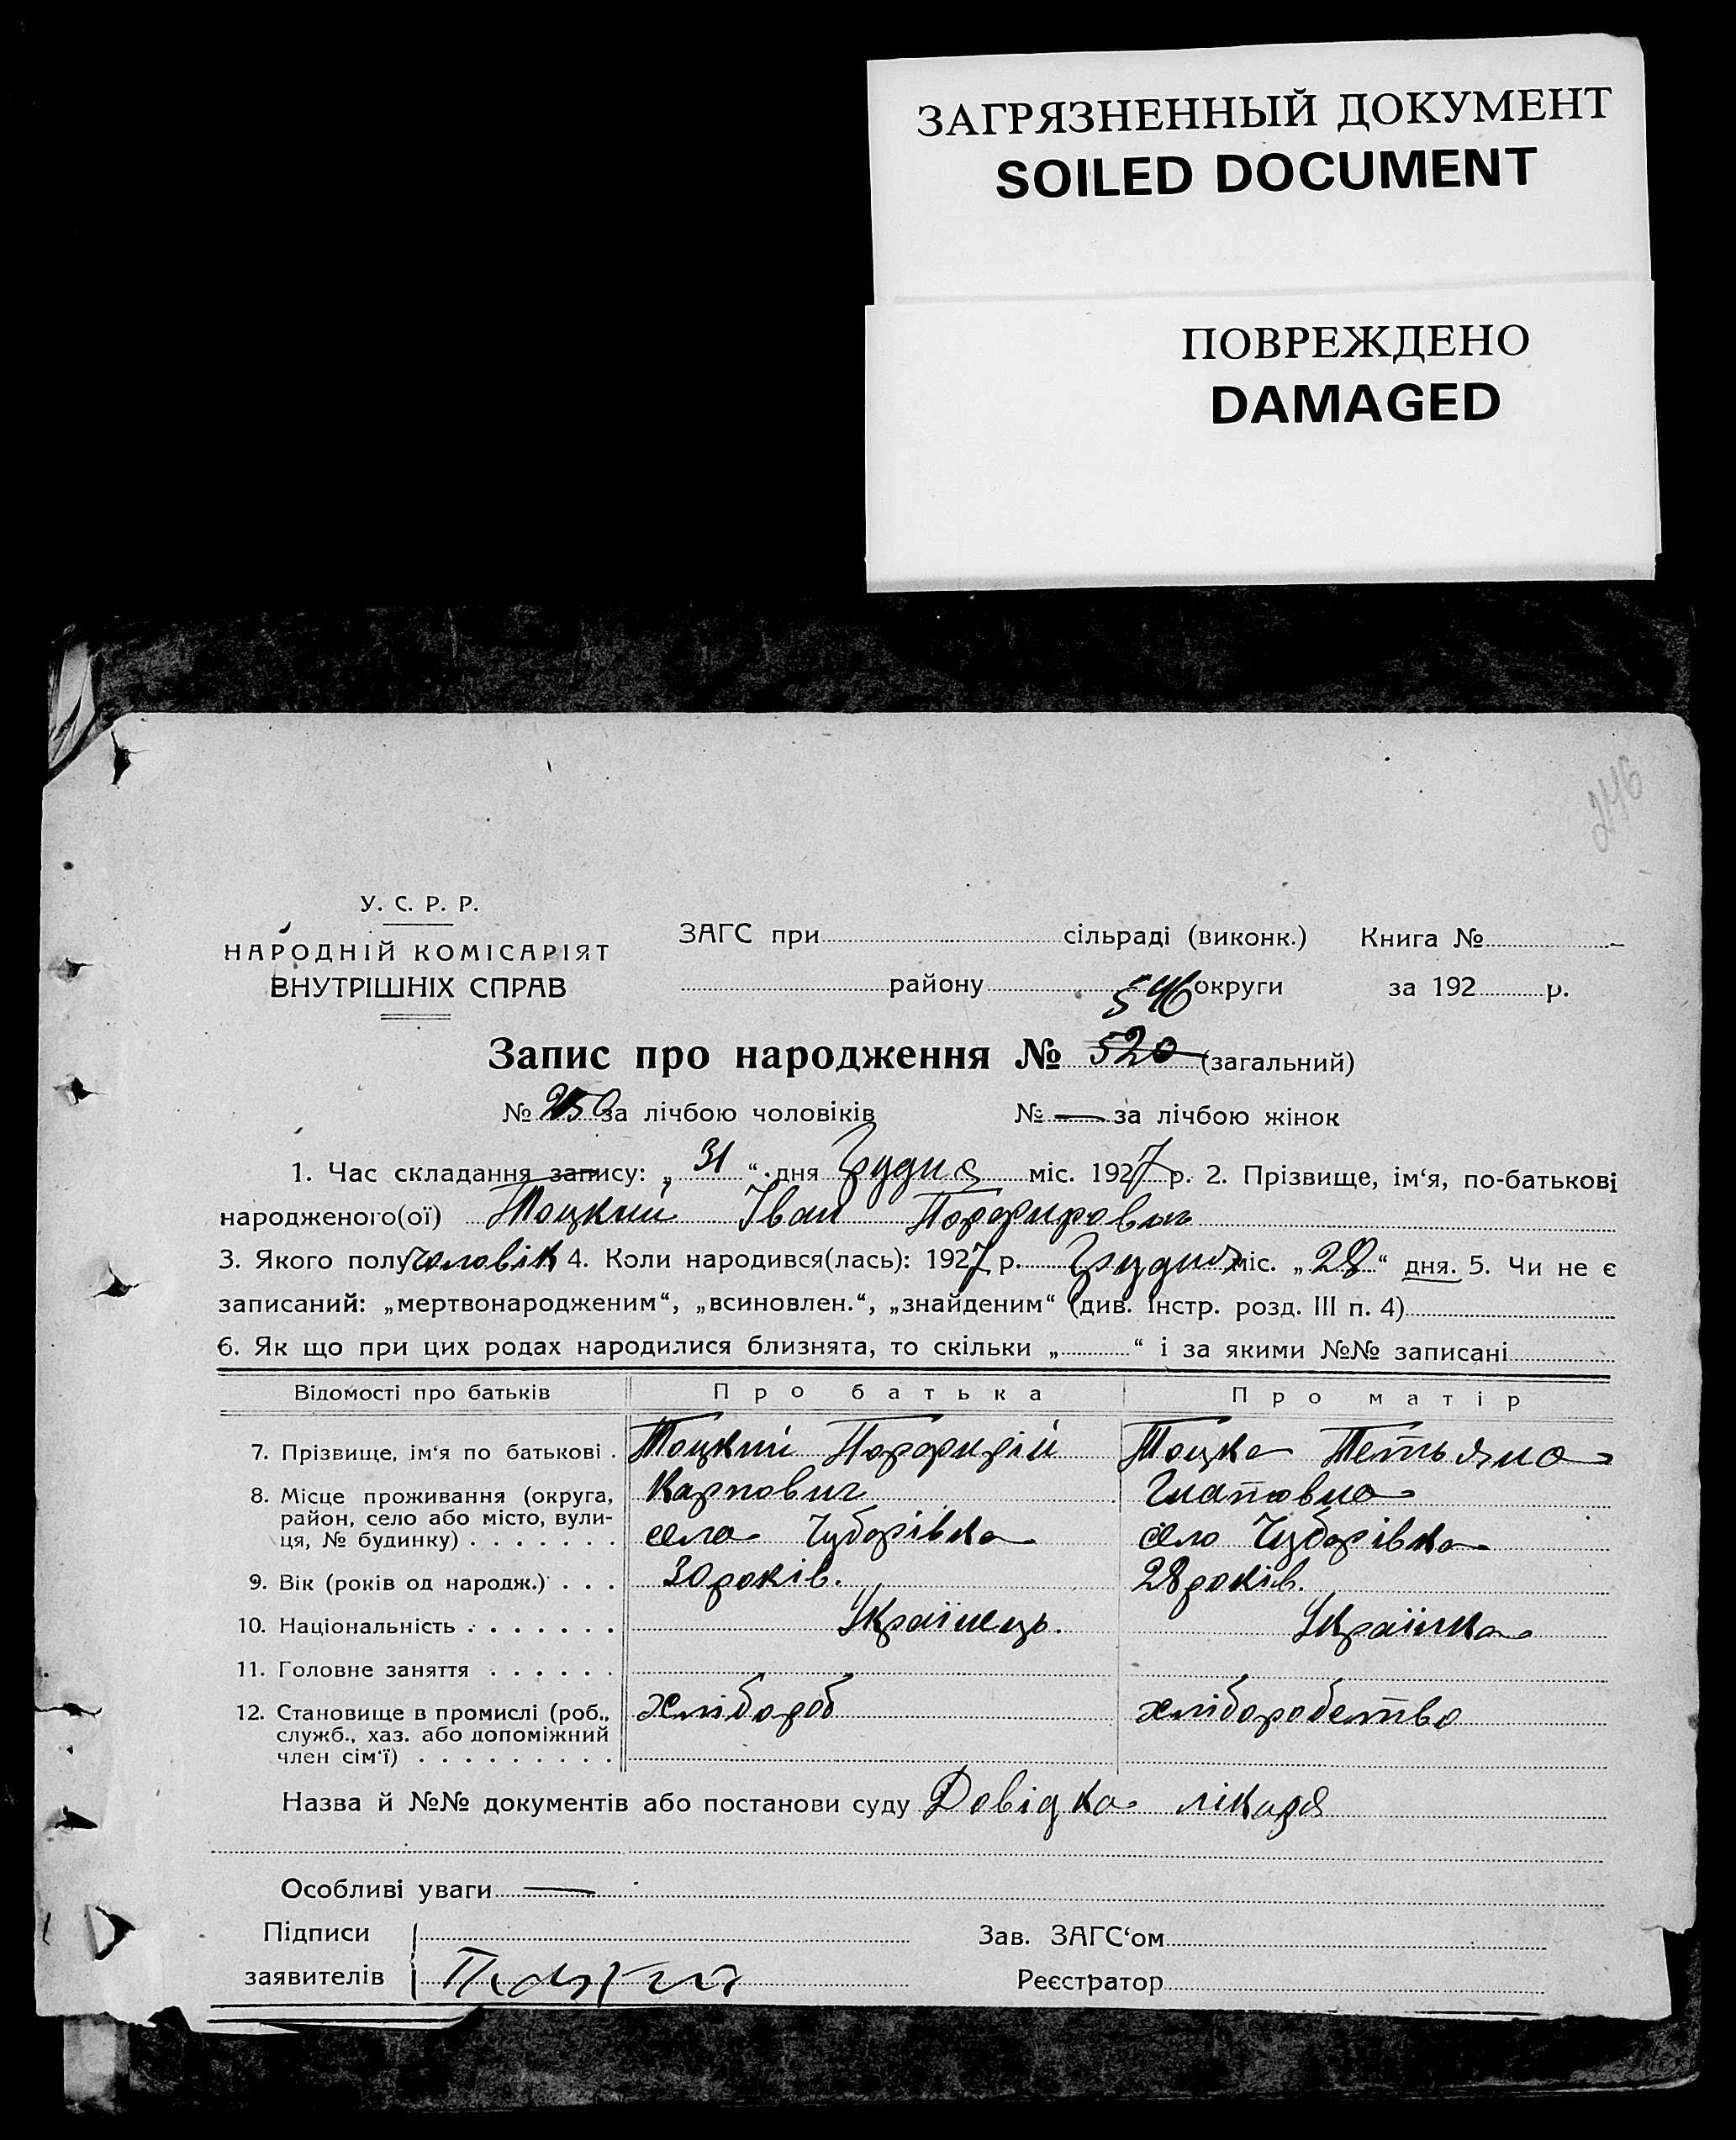 ЗАГРЯЗНЕННЫЙ ДОКУМЕНТ
SOILED DOCUMENT
ПОВРЕЖДЕНО
DAMAGED
246
У. С. Р. Р.
НАРОДНІЙ КОМІСАРІЯТ
ВНУТРІШНІХ СПРАВ
ЗАГС при сільраді (виконк.) Книга №
району округи за 192 р.
546
Запис про народження № 520 (загальний)
№ 250 за лічбою чоловіків № — за лічбою жінок
1. Час складання запису: „ 31 “ дня Грудня міс. 1927 р. 2. Прізвище, ім‘я, по-батькові
народженого(ої) Тоцкий Іван Порфирович
3. Якого полу чоловік 4. Коли народився(лась): 1927 р. Грудня міс. „ 28 “ дня. 5. Чи не є
записаний: „мертвонародженим“, „всиновлен.“, „знайденим“ (див. Інстр. розд. III п. 4)
6. Як що при цих родах народилися близнята, то скільки „ “ і за якими №№ записані
Відомості про батьків Про батька Про матір
7. Прізвище, ім‘я по батькові . Тоцкий Порфирій Тоцка Тетьяна
8. Місце проживання (округа, Карпович Гнатовна
район, село або місто, вули-
ця, № будинку) . . . . . . . село Чубарівка село Чубарівка
9. Вік (років од народж.) . . . 30 років. 28 років.
10. Національність . . . . . . . Українець. Українка
11. Головне заняття . . . . . .
12. Становище в промислі (роб., хлібороб хліборобство
служб., хаз. або допоміжний
член сім‘ї) . . . . . . . . .
Назва й №№ документів або постанови суду Довідка лікаря
Особливі уваги —
Підписи Зав. ЗАГС‘ом
заявителів Реєстратор